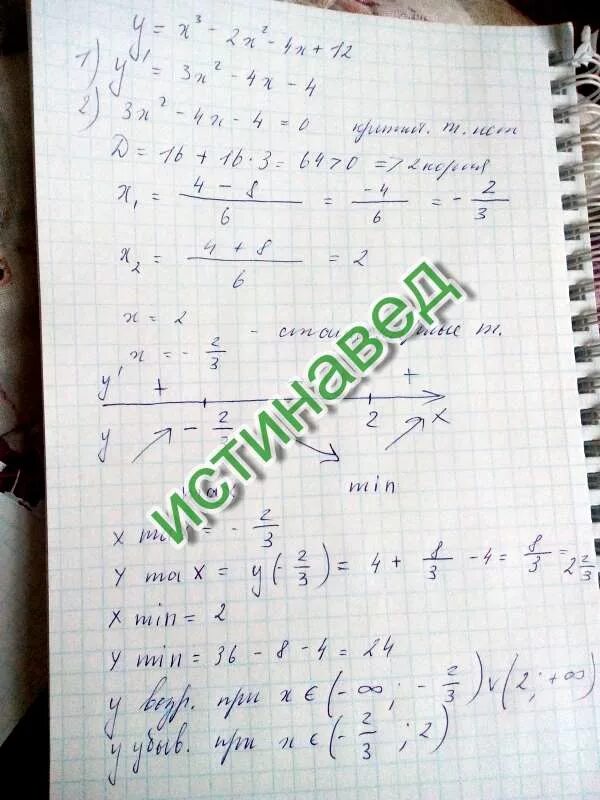 y = x³ - 2x² - 4x + 12
1) y' = 3x² - 4x - 4
2) 3x² - 4x - 4 = 0 критич. т. нет
D = 16 + 16·3 = 64 > 0 => 2 корня
x₁ = (4 - 8)/6 = -4/6 = -2/3
x₂ = (4 + 8)/6 = 2
x = 2
x = - 2/3 - т.
y' + +
y - 2 2 x
min
x = - 2/3
y max = y(- 2/3) = 4 + 8/3 - 4 = 8/3 = 2 2/3
x min = 2
y min = 36 - 8 - 4 = 24
y возр. при x ∈ (-∞; - 2/3) ∨ (2; +∞)
y убыв. при x ∈ (- 2/3 ; 2)
истинавед